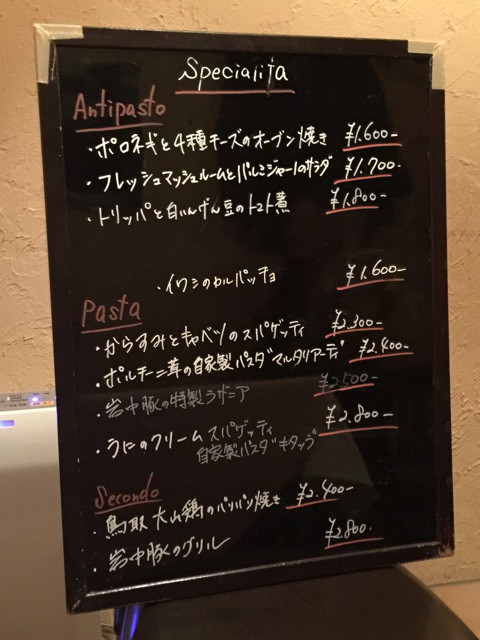 Specialita
Antipasto
・ポロネギと4種チーズのオーブン焼き ¥1.600-
・フレッシュマッシュルームとパルミジャーノのサラダ ¥1.700-
・トリッパと白いんげん豆のトマト煮 ¥1.800-
・イワシのカルパッチョ ¥1.600-
Pasta
・からすみとキャベツのスパゲッティ ¥2.300-
・ポルチーニ茸の自家製パスタ マルタリアーティ ¥2.400-
・岩中豚の特製ラザニア ¥2.500-
・うにのクリーム スパゲッティ ¥2.800-
自家製パスタ"キタッラ"
Secondo
・鳥取 大山鶏のパリパリ焼き ¥2.400-
・岩中豚のグリル ¥2.800-